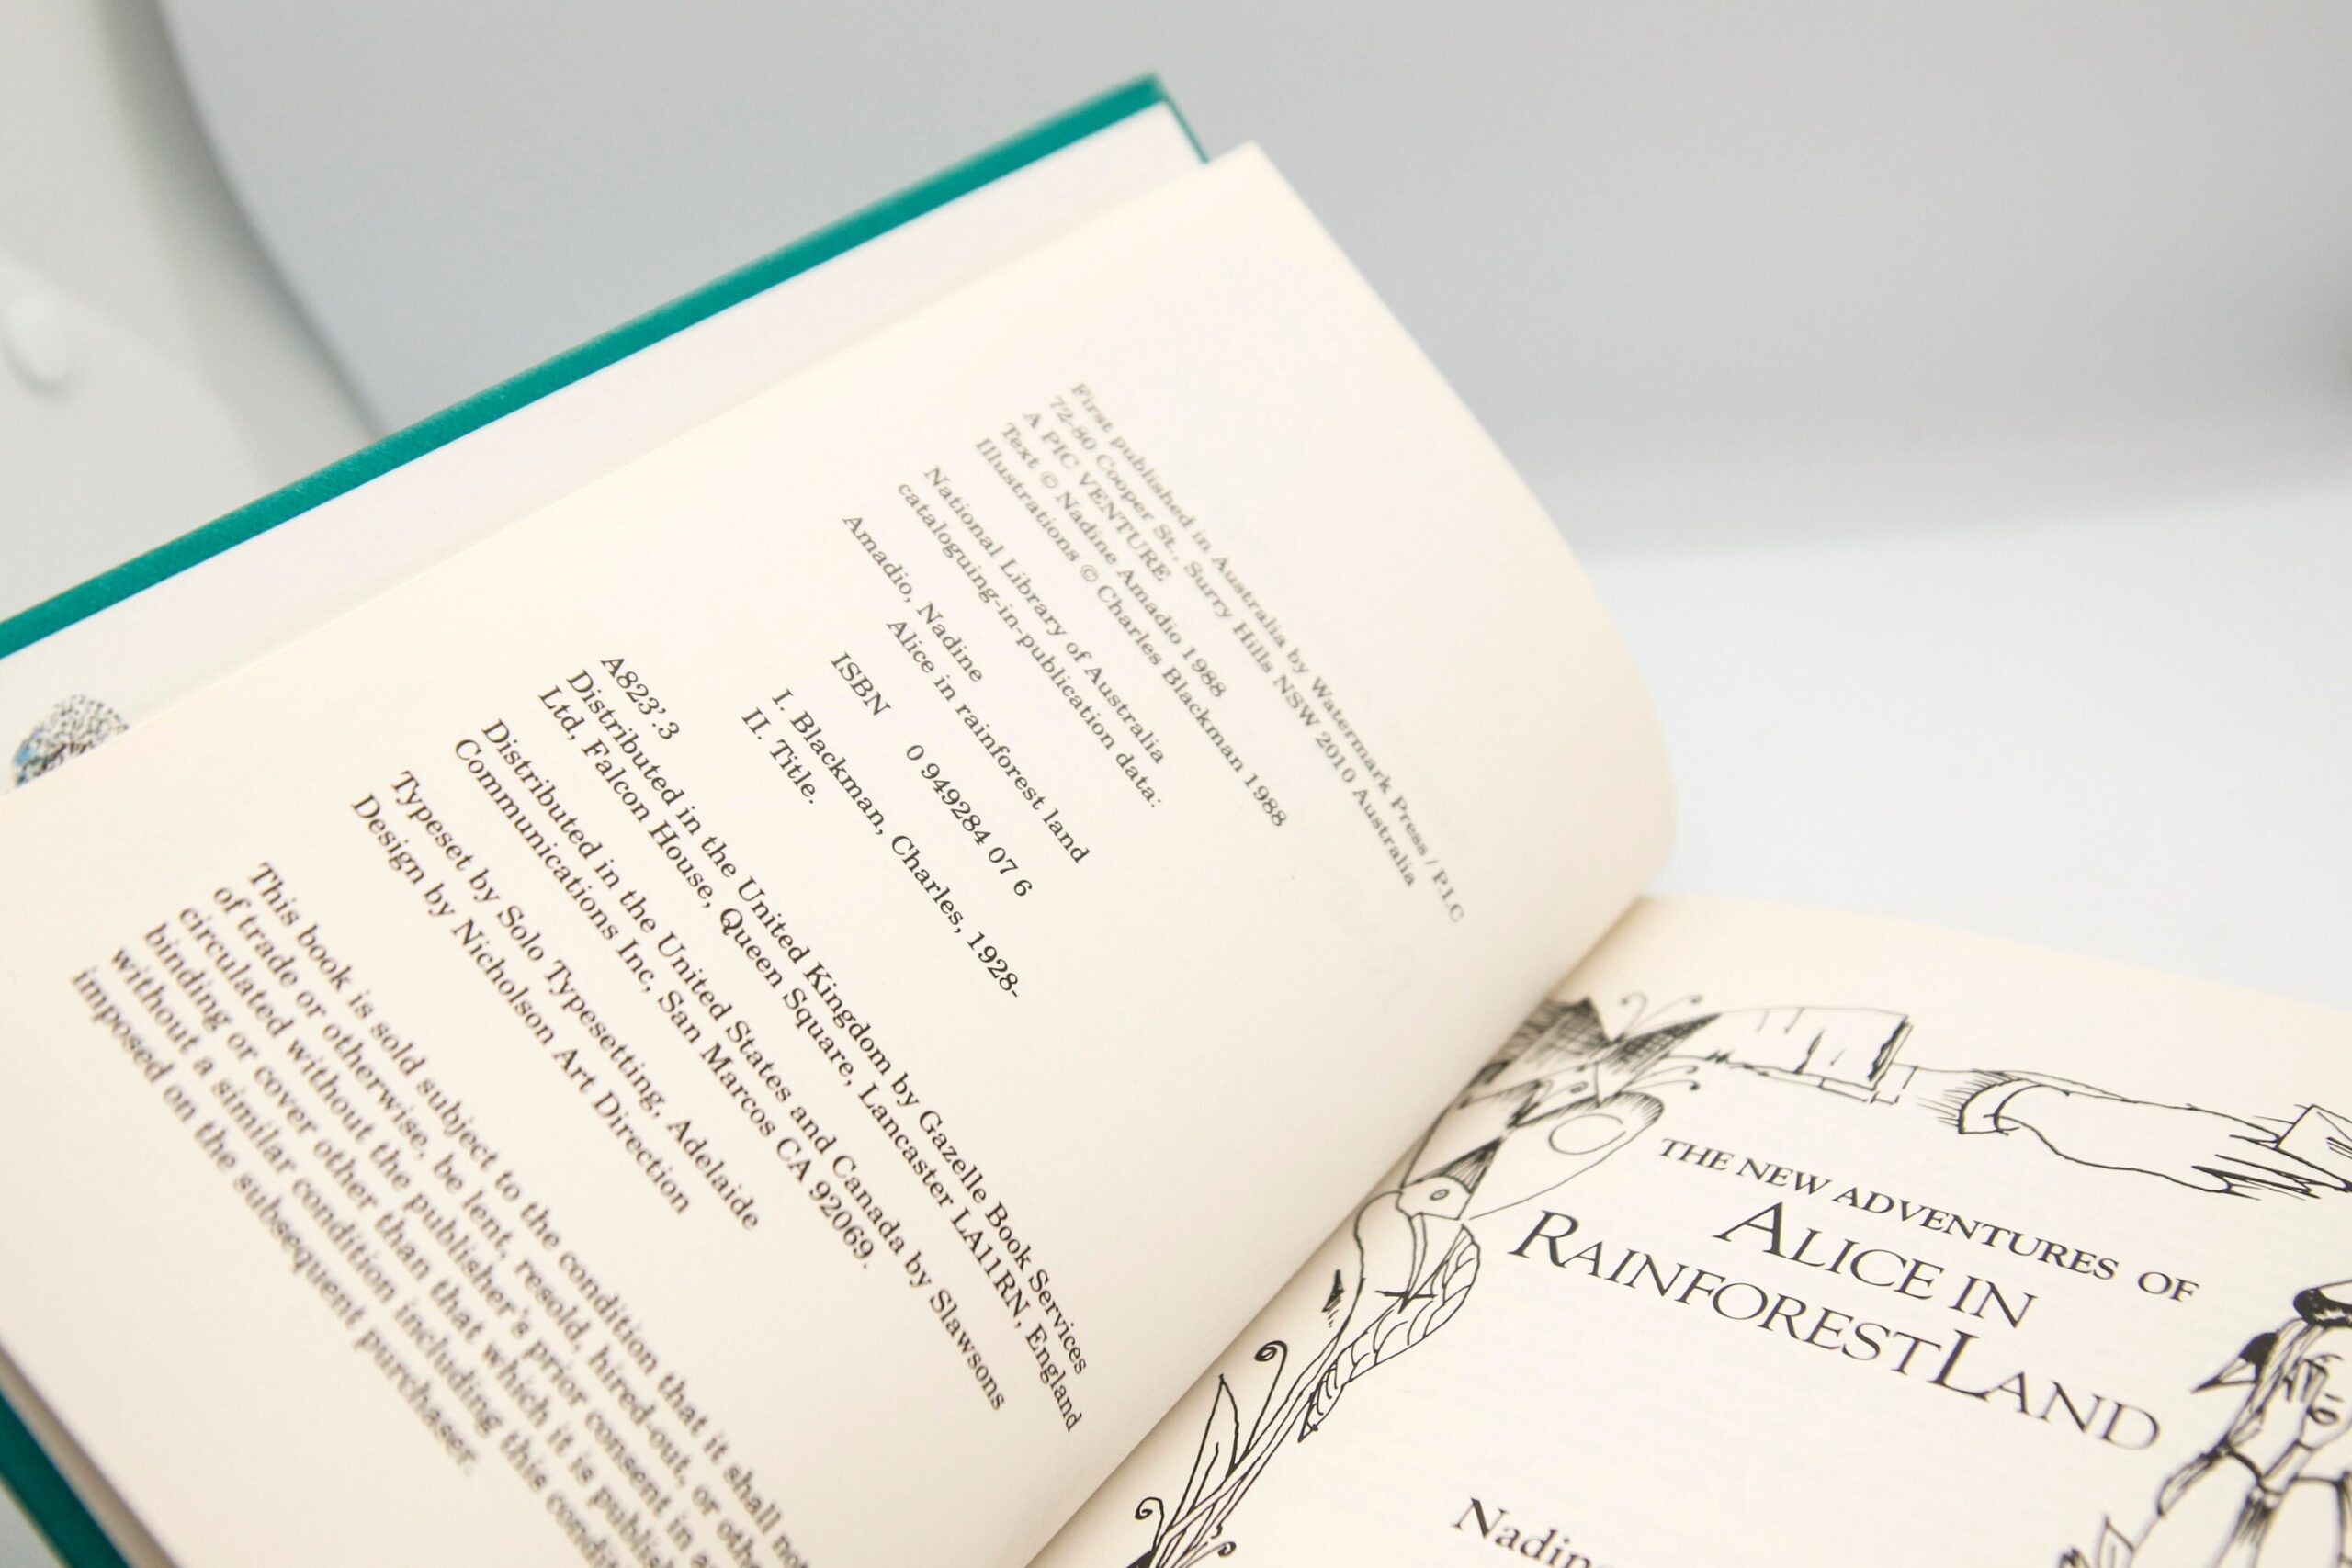 First published in Australia by Watermark Press / P.I.C
72-80 Cooper St., Surry Hills NSW 2010 Australia
A PIC VENTURE
Text © Nadine Amadio 1988
Illustrations © Charles Blackman 1988
National Library of Australia
cataloguing-in-publication data:
Amadio, Nadine
Alice in rainforest land
ISBN 0 949284 07 6
I. Blackman, Charles, 1928-
II. Title.
A823'.3
Distributed in the United Kingdom by Gazelle Book Services
Ltd, Falcon House, Queen Square, Lancaster LA11RN, England
Distributed in the United States and Canada by Slawsons
Communications Inc, San Marcos CA 92069.
Typeset by Solo Typesetting, Adelaide
Design by Nicholson Art Direction
This book is sold subject to the condition that it shall not
of trade or otherwise, be lent, resold, hired-out, or othe
circulated without the publisher's prior consent in a
binding or cover other than that which it is publis
without a similar condition including this condi
imposed on the subsequent purchaser.
THE NEW ADVENTURES OF
ALICE IN
RAINFORESTLAND
Nadin